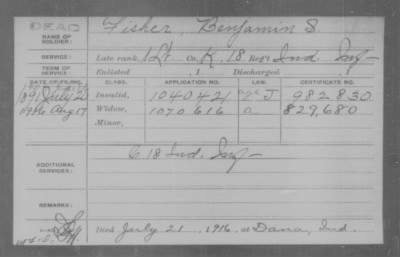 DEAD
NAME OF SOLDIER: Fisher, Benjamin S.
SERVICE: Late rank 1 Lt. Co. K, 18 Reg't Ind. Inf.
TERM OF SERVICE: Enlisted , 1 Discharged , 1
DATE OF FILING. CLASS. APPLICATION NO. LAW. CERTIFICATE NO.
1891 July 2 Invalid, 1040421 J 982830
1916 Aug 17 Widow, 1070616 829,680
Minor,
ADDITIONAL SERVICES: C 18 Ind. Inf.
REMARKS:
Died July 21, 1916, at Dana, Ind.